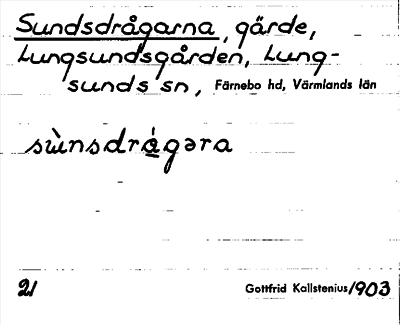 Sundsdrågarna, gärde,
Lungsundsgården, Lung-
sunds sn, Färnebo hd, Värmlands län
sùnsdrágəra
21 Gottfrid Kallstenius/1903